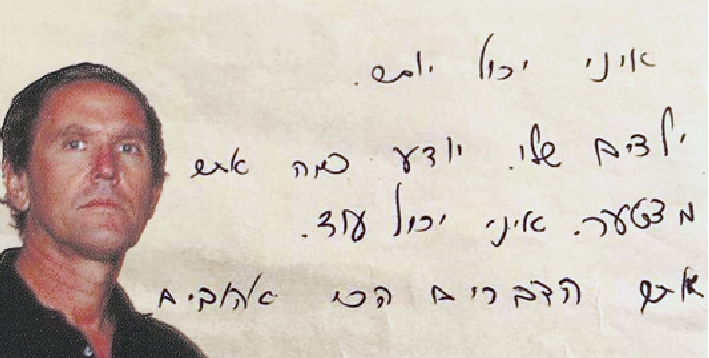 איני יכול
ילדים שלי. יודע כמה
מצטער. איני יכול עוד.
אתם הדברים הכי אהובים